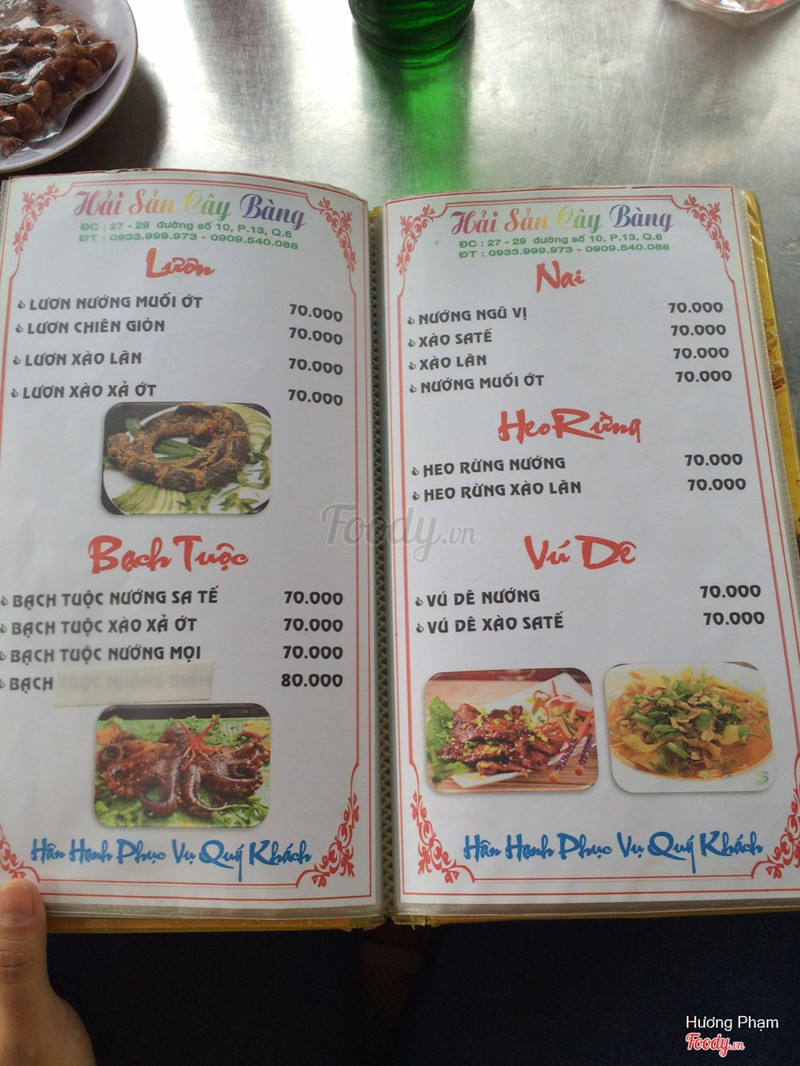 Hải Sản Cây Bàng
ĐC : 27 - 29 đường số 10, P.13, Q.6
ĐT : 0933.999.973 - 0909.540.088
Lươn
LƯƠN NƯỚNG MUỐI ỚT 70.000
LƯƠN CHIÊN GIÒN 70.000
LƯƠN XÀO LĂN 70.000
LƯƠN XÀO XẢ ỚT 70.000
Bạch Tuộc
BẠCH TUỘC NƯỚNG SA TẾ 70.000
BẠCH TUỘC XÀO XẢ ỚT 70.000
BẠCH TUỘC NƯỚNG MỌI 70.000
BẠCH 80.000
Hân Hạnh Phục Vụ Quý Khách
Hải Sản Cây Bàng
ĐC : 27 - 29 đường số 10, P.13, Q.6
ĐT : 0933.999.973 - 0909.540.088
Nai
NƯỚNG NGŨ VỊ 70.000
XÀO SATẾ 70.000
XÀO LĂN 70.000
NƯỚNG MUỐI ỚT 70.000
Heo Rừng
HEO RỪNG NƯỚNG 70.000
HEO RỪNG XÀO LĂN 70.000
Vú Dê
VÚ DÊ NƯỚNG 70.000
VÚ DÊ XÀO SATẾ 70.000
Hân Hạnh Phục Vụ Quý Khách
Foody.vn
Hương Phạm
Foody.vn